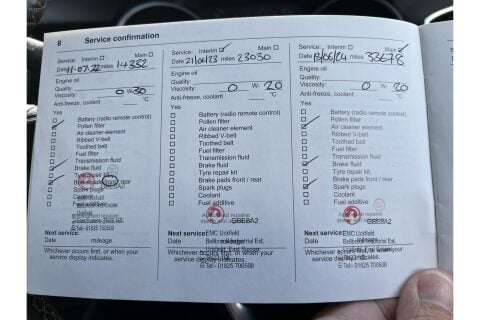 8 Service confirmation
Service: Interim Main
Date 11-07-22 miles 14382
Engine oil
Quality:
Viscosity: 0 W- 30
Anti-freeze, coolant °C
Yes
Battery (radio remote control)
Pollen filter
Air cleaner element
Ribbed V-belt
Toothed belt
Fuel filter
Transmission fluid
Brake fluid
Tyre repair kit
Brake pads front / rear
Spark plugs
Coolant
Fuel additive
Next service:
Date mileage
Whichever occurs first, or when your
service display indicates.
Service: Interim Main
Date 21/04/23 miles 23030
Engine oil
Quality:
Viscosity: 0 W- 20
Anti-freeze, coolant °C
Yes
Battery (radio remote control)
Pollen filter
Air cleaner element
Ribbed V-belt
Toothed belt
Fuel filter
Transmission fluid
Brake fluid
Tyre repair kit
Brake pads front / rear
Spark plugs
Coolant
Fuel additive
GBEBA2
EMC Uckfield
Next service:
Date mileage
Whichever occurs first, or when your
service display indicates.
Tel:- 01825 700500
Service: Interim Main
Date 13/05/24 miles 33678
Engine oil
Quality:
Viscosity: 0 W- 20
Anti-freeze, coolant °C
Yes
Battery (radio remote control)
Pollen filter
Air cleaner element
Ribbed V-belt
Toothed belt
Fuel filter
Transmission fluid
Brake fluid
Tyre repair kit
Brake pads front / rear
Spark plugs
Coolant
Fuel additive
GBEBA2
EMC Uckfield
Next service:
Date mileage
Whichever occurs first, or when your
service display indicates.
Tel:- 01825 700500